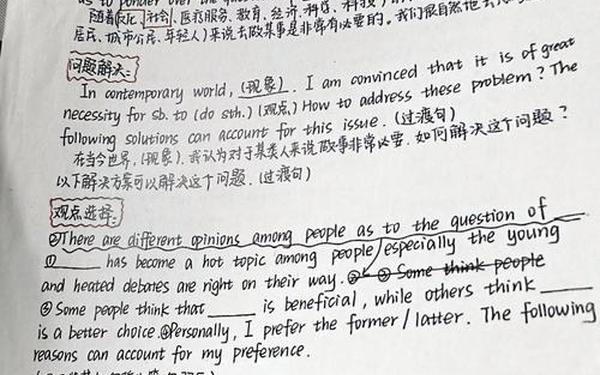 as to ponder over the
随着(文化、社会、医疗服务、教育、经济、科学、科技)的
居民、城市公民、年轻人)来说去做某事是非常有必要的。我们很自然地去
问题解决:
In contemporary world, (现象). I am convinced that it is of great
necessity for sb. to (do sth.) (观点) How to address these problem? The
following solutions can account for this issue. (过渡句)
在当今世界, (现象). 我认为对于某类人来说做事非常必要. 如何解决这个问题?
以下解决方案可以解决这个问题. (过渡句)
观点选择:
②There are different opinions among people as to the question of ___
①____ has become a hot topic among people, especially the young
and heated debates are right on their way. ③ Some think people
④ Some people think that ____ is beneficial, while others think ____
is a better choice. ⑤Personally, I prefer the former / latter. The following
reasons can account for my preference.